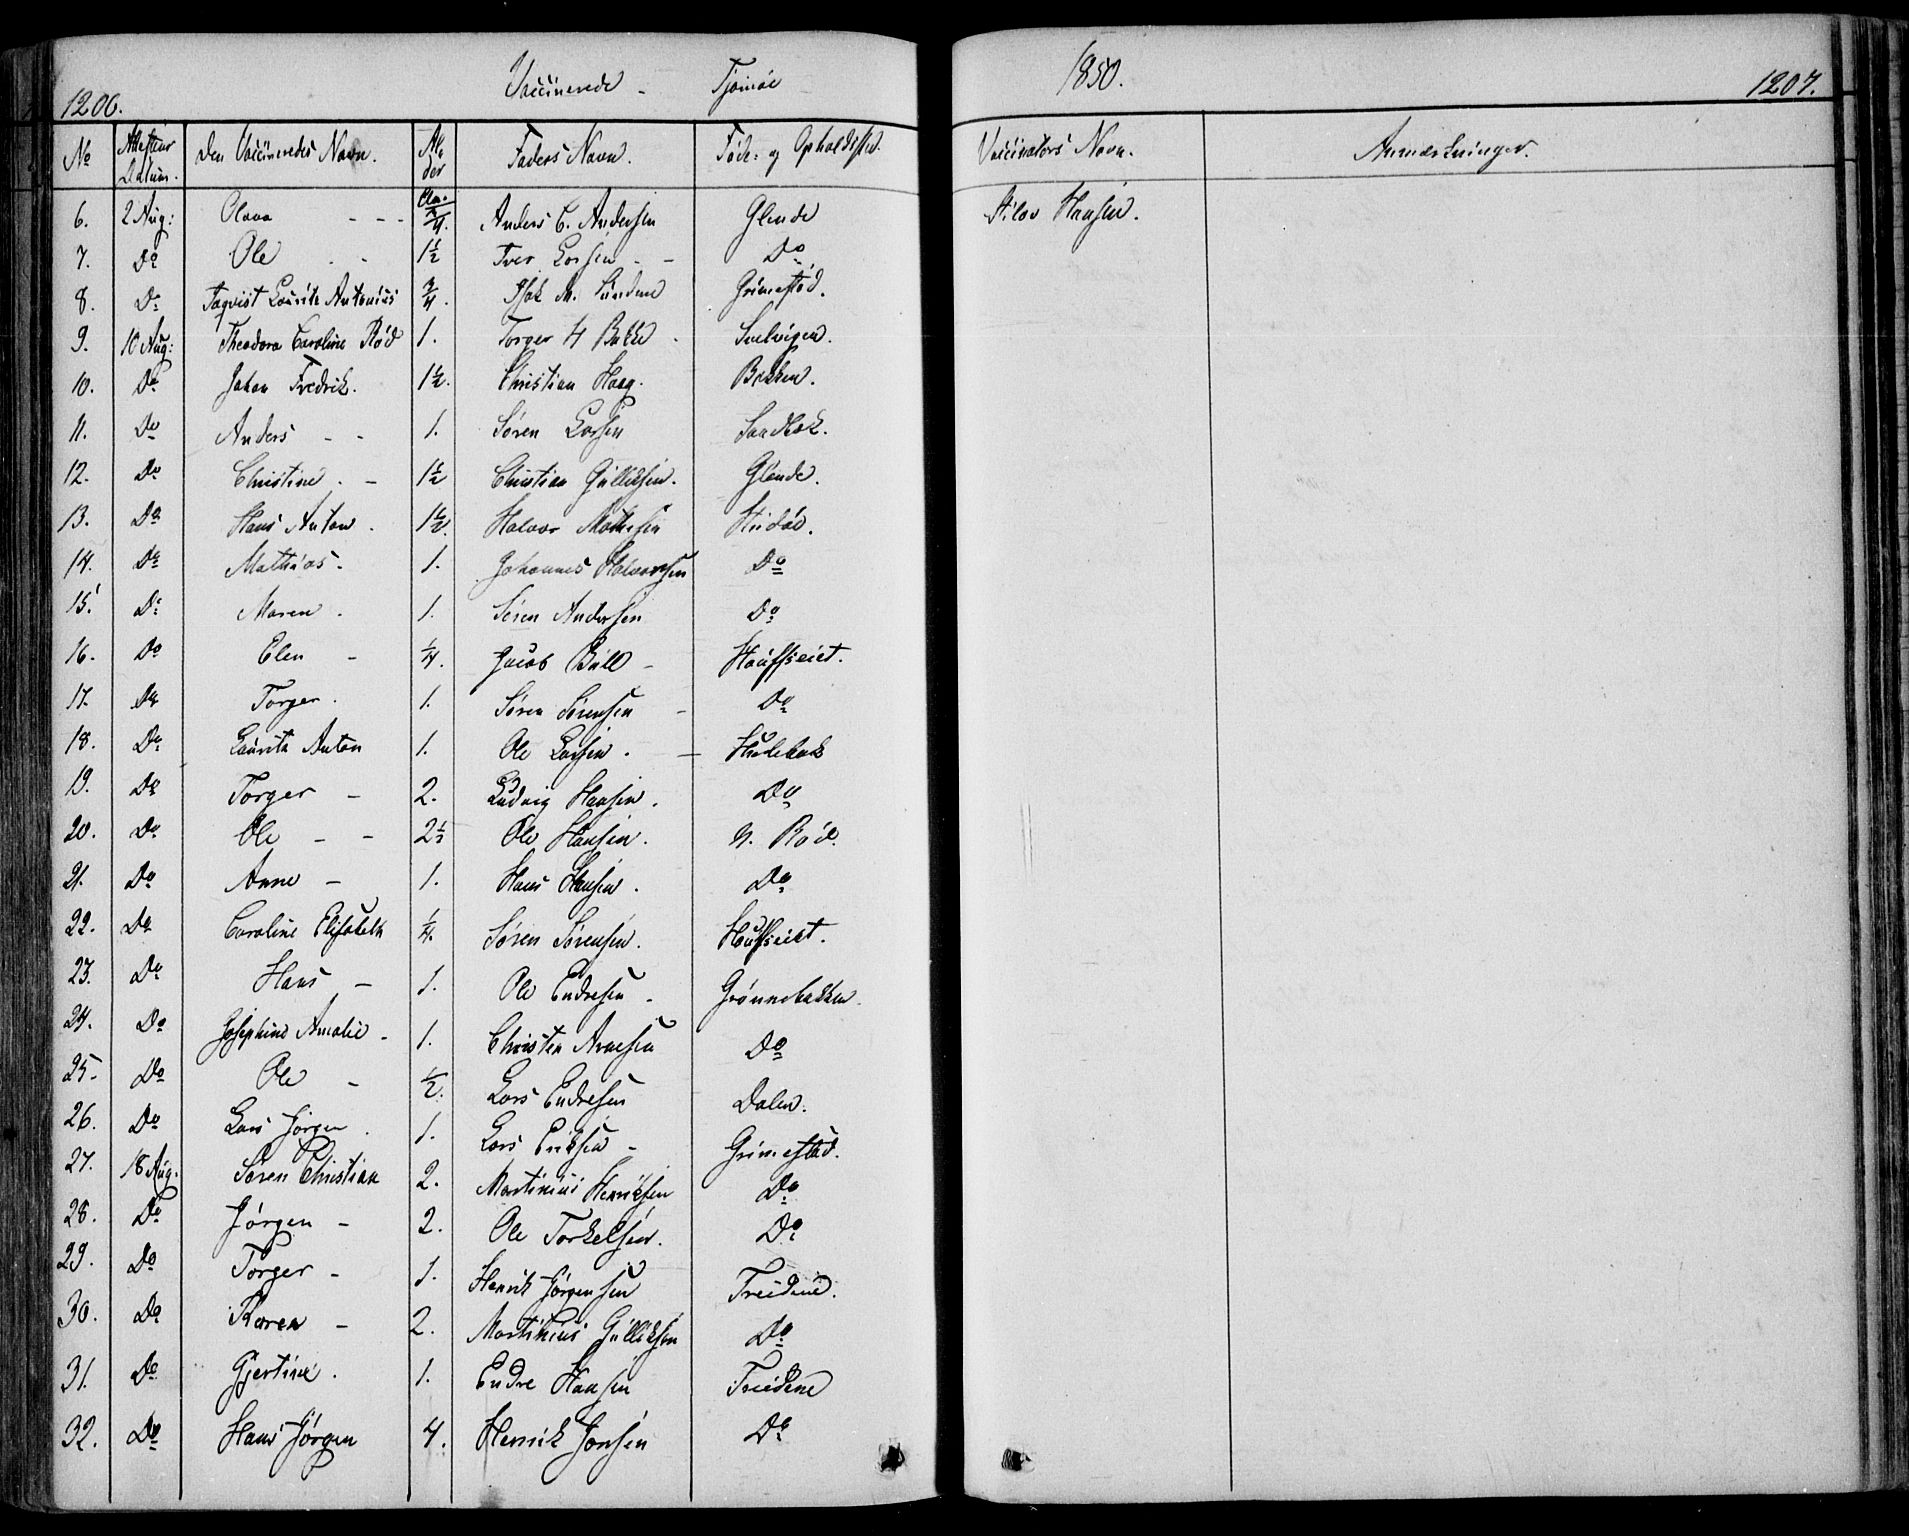 1206. Vaccinerede - Tjømøe 1850. 1207.
No Attestens Datum. Den Vaccineredes Navn. Alder Faders Navn. Føde- og Opholdssted. Vaccinators Navn. Anmærkninger.
6. 2 Aug: Olava - - - 3/4. Anders C. Andersen Glende Hansen.
7. Do Ole - - 1½ Iver Larsen - - Do
8. Do Laurits Antonius 3/4. Isak M. Sundene Grimestad.
9. 10 Aug: Theodora Caroline Rød 1. Torger H Bakke. Sælvigen.
10. Do Johan Fredrik. 1½. Christian Haag. Bakken.
11. Do Anders - - 1. Søren Larsen Sandbæk.
12. Do Christine. - 1½ Christian Gulliksen. Glende.
13. Do Hans Anton. 1½. Halvor Mathesen
14. Do Mathias - 1. Johannes Halvorsen Do
15. Do Maren. 1. Søren Andersen Do
16. Do Elen - ¼. Jacob Bull - Houffseiet.
17. Do Torger. 1. Søren Sørensen - Do
18. Do Laurits Anton 1. Ole Larsen. - Holebak
19. Do Torger - 2. Ludvig Hansen. Do
20. Do Ole - - 2½ Ole Hansen. N. Rød.
21. Do Anne - 1. Hans Hansen. Do
22. Do Caroline Elisabeth ¼. Søren Sørensen. Houffseiet.
23. Do Hans - 1. Ole Endresen - Grønnebakken.
24. Do Josephine Amalie - 1. Christen Arnesen Do
25. Do Ole - ½. Lars Endresen Dalen.
26. Do Lars Jørgen. 1. Lars Eriksen - Grimestad.
27. 18 Aug. Søren Christian 2. Martinius Henriksen Do
28. Do Jørgen - 2. Ole Torkelsen. Do
29. Do Torger - 1. Henrik Jørgensen Treidene.
30. Do Karen - 2. Martinius Gulliksen Do
31. Do Gjertine. 1. Endre Hansen Treidene
32. Do Hans Jørgen 4. Henrik Jonsen Do